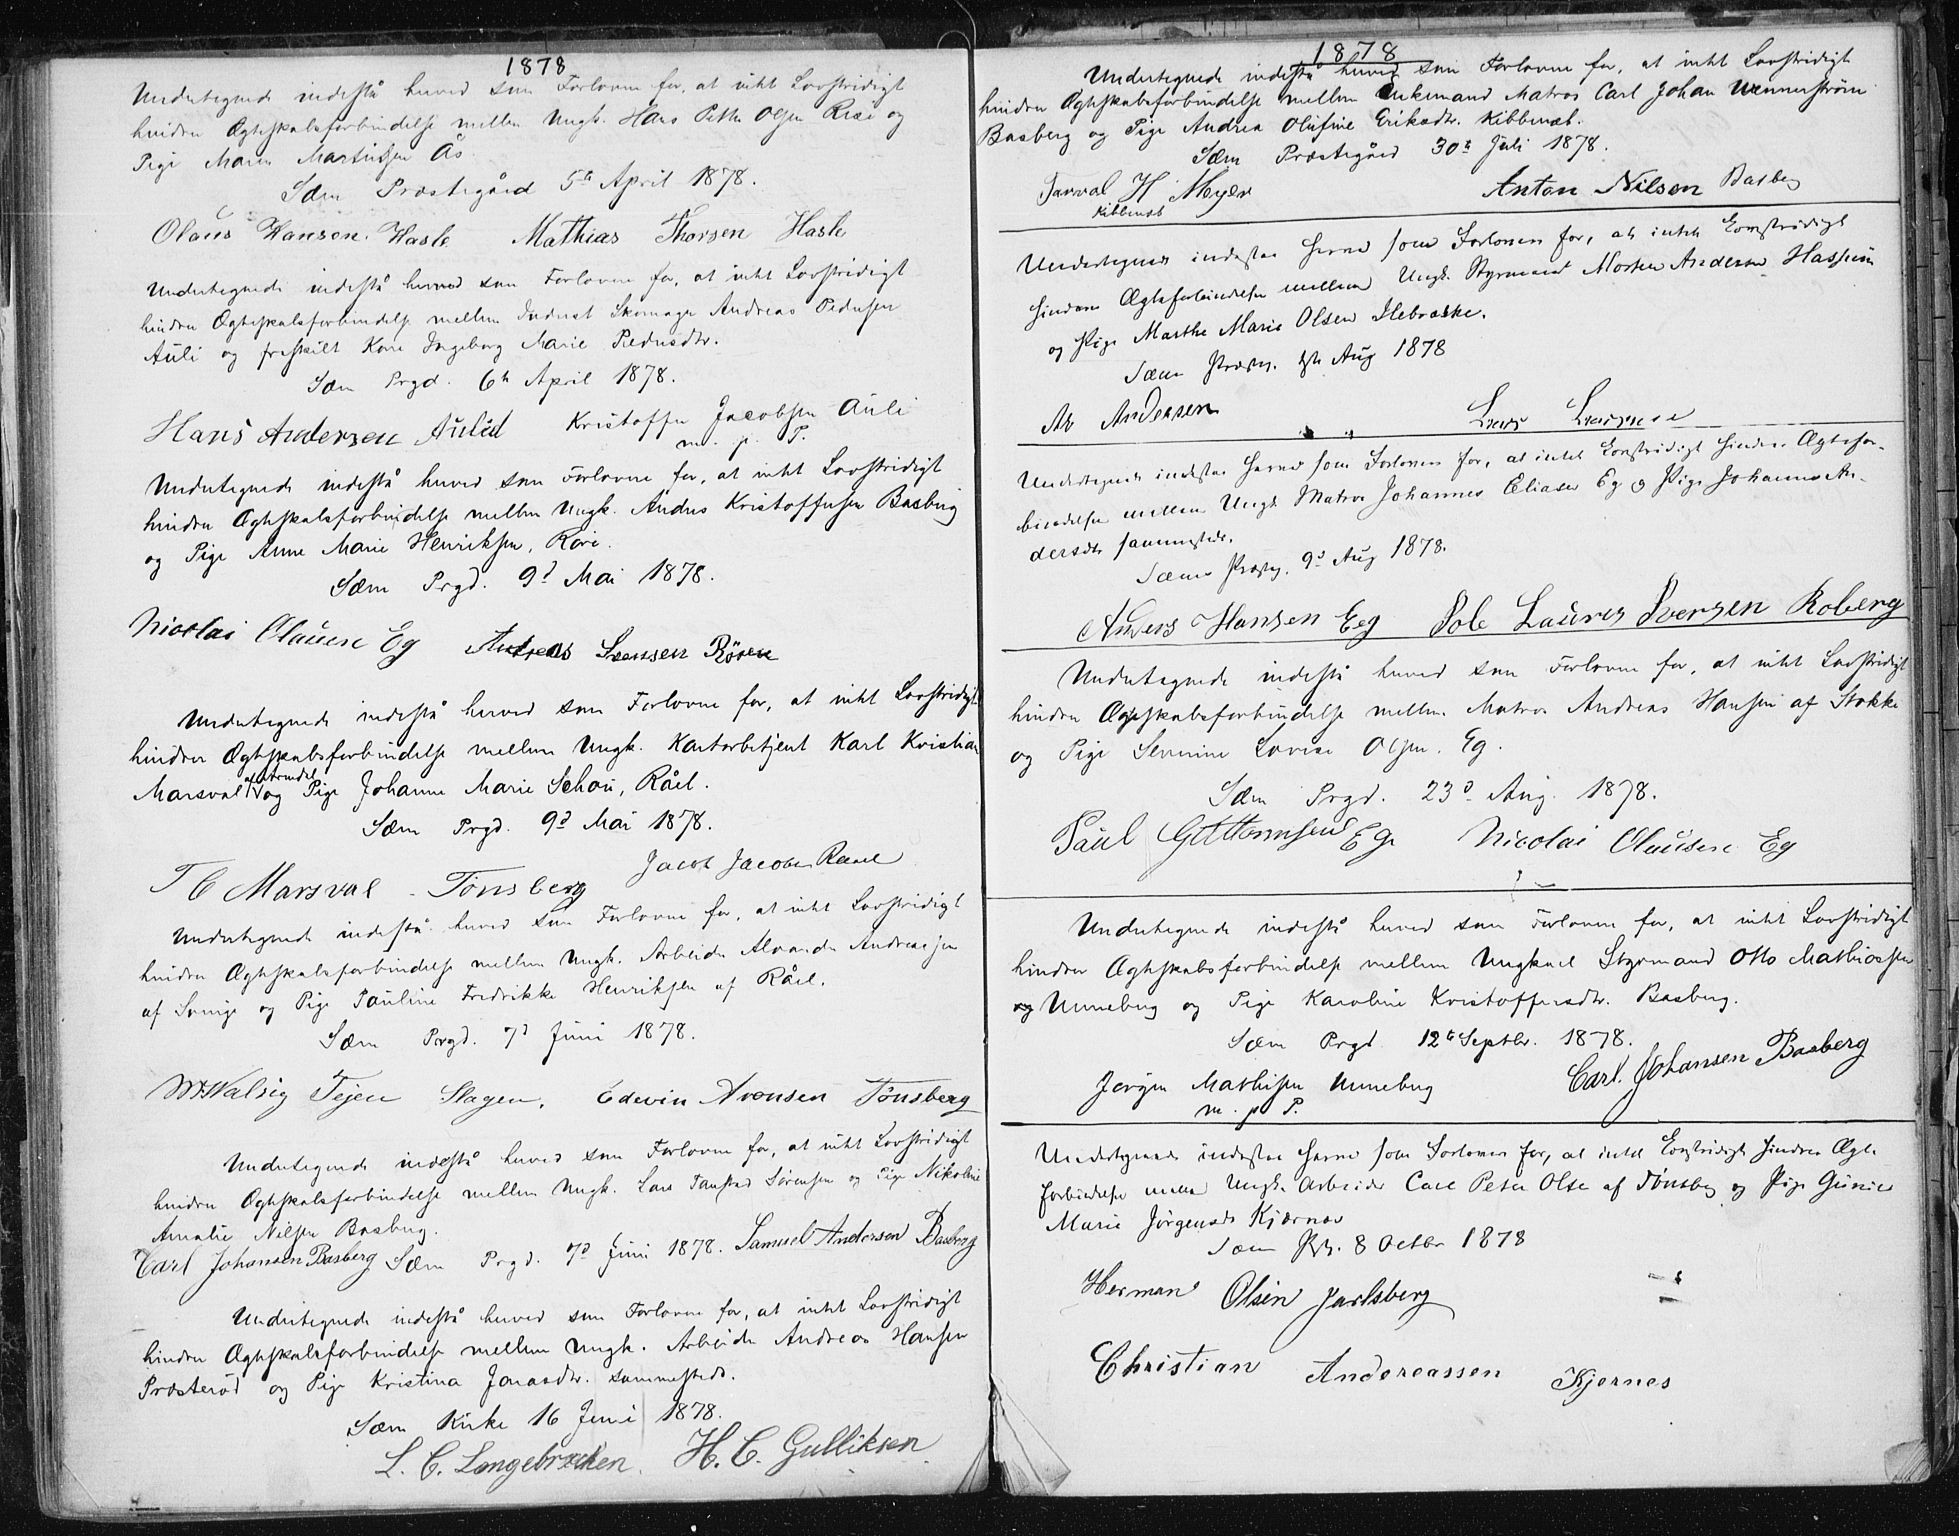 1878
Undertegnede indestå herved som Forlovere for, at intet Lovstridigt
hindrer Ægteskabsforbindelse mellem Ungk. Hans Petter Olsen Rise og
Pige Maren Martinsen Ås.
Sæm Præstegård 5te April 1878.
Olaus Hansen Hasle Mathias Thorsen Hasle
Undertegnede indestå herved som Forlovere for, at intet Lovstridigt
hindrer Ægteskabsforbindelse mellem Skomager Andreas Pedersen
Auli og fraskilt Kone Ingeborg Marie Pedersdtr.
Sæm Prgd. 6te April 1878.
Hans Andersen Aulid Kristoffer Jacobsen Auli
m. p. P.
Undertegnede indestå herved som Forlovere for, at intet Lovstridigt
hindrer Ægteskabsforbindelse mellem Ungk. Anders Kristoffersen Basberg
og Pige Anne Marie Henriksen, Røre.
Sæm Prgd. 9d Mai 1878.
Nicolai Olausen Eg Andreas Svensen Rören
Undertegnede indestå herved som Forlovere for, at intet Lovstridigt
hindrer Ægteskabsforbindelse mellem Ungk. Kontorbetjent Karl Kristian
Marsval af Arendal og Pige Johanne Marie Schou, Råel.
Sæm Prgd. 9d Mai 1878.
T C Marsval - Tönsberg Jacob Jacobsen Raael
Undertegnede indestå herved som Forlovere for, at intet Lovstridigt
hindrer Ægteskabsforbindelse mellem Ungk. Arbeider Andreassen
af Sverige og Pige Pauline Fredrikke Henriksen af Råel.
Sæm Prgd. 7d Juni 1878.
Tejen Slagen. Edevin Avensen Tönsberg
Undertegnede indestå herved som Forlovere for, at intet Lovstridigt
hindrer Ægteskabsforbindelse mellem Ungk. Lars Sørensen og Pige Nikoline
Amalie Nilsen Basberg.
Carl Johansen Basberg Sæm Prgd. 7d Juni 1878. Samuel Andersen Basberg
Undertegnede indestå herved som Forlovere for, at intet Lovstridigt
hindrer Ægteskabsforbindelse mellem Ungk. Arbeider Andreas Hansen
Præsterød og Pige Kristina Jonasdtr. sammesteds.
Sæm Kirke 16 Juni 1878.
L. C. Langebrækken. H. C. Gulliksen
1878
Undertegnede indestå herved som Forlovere for, at intet Lovstridigt
hindrer Ægteskabsforbindelse mellem Enkemand Matros Carl Johan Wennerstrøm
Basberg og Pige Andrea Olufine Eriksdtr. Kibbenæb.
Sæm Præstegård 30te Juli 1878.
H Meyer Anton Nilsen Basberg
Kibbenæb
Undertegnede indestaa herved som Forlovere for, at intet Lovstridigt
hindrer Ægteforbindelse mellem Ungk. Styrmand Morten Andersen Hassum
og Pige Marthe Marie Olsen Ilebrække.
Sæm Præstg. Aug 1878
Ar Andersen Lars Larsen
Undertegnede indestaa herved som Forlovere for, at intet Lovstridigt hindrer Ægtefor-
bindelse mellem Ungk Matros Johannes Eliasen Eg og Pige Johanne An-
dersdtr sammesteds.
Sæm Præstg. 9d Aug 1878.
Anders Hansen Eeg Iversen Roberg
Undertegnede indestå herved som Forlovere for, at intet Lovstridigt
hindrer Ægteskabsforbindelse mellem Matros Andreas Hansen af Stokke
og Pige Severine Lovise Olsen. Eg.
Sæm Prgd. 23d Aug. 1878.
Paul Guttormsen Eg Nicolai Olausen Eg
Undertegnede indestå herved som Forlovere for, at intet Lovstridigt
hindrer Ægteskabsforbindelse mellem Ungkarl Styrmand Otto Mathiassen
og Unneberg og Pige Karoline Kristoffersdtr. Basberg.
Sæm Prgd. 12te Septbr. 1878.
Jørgen Mathisen Unneberg Carl. Johansen Basberg
m. p P.
Undertegnede indestaa herved som Forlovere for, at intet Lovstridigt hindrer Ægte-
forbindelse mellem Ungk. Arbeider Carl Peter Olsen af Tönsberg og Pige
Marie Jörgensdtr Kjærnæs
Sæm 8 Octbr 1878
Herman Olsen Jarlsberg
Christian Andereassen Kjernes